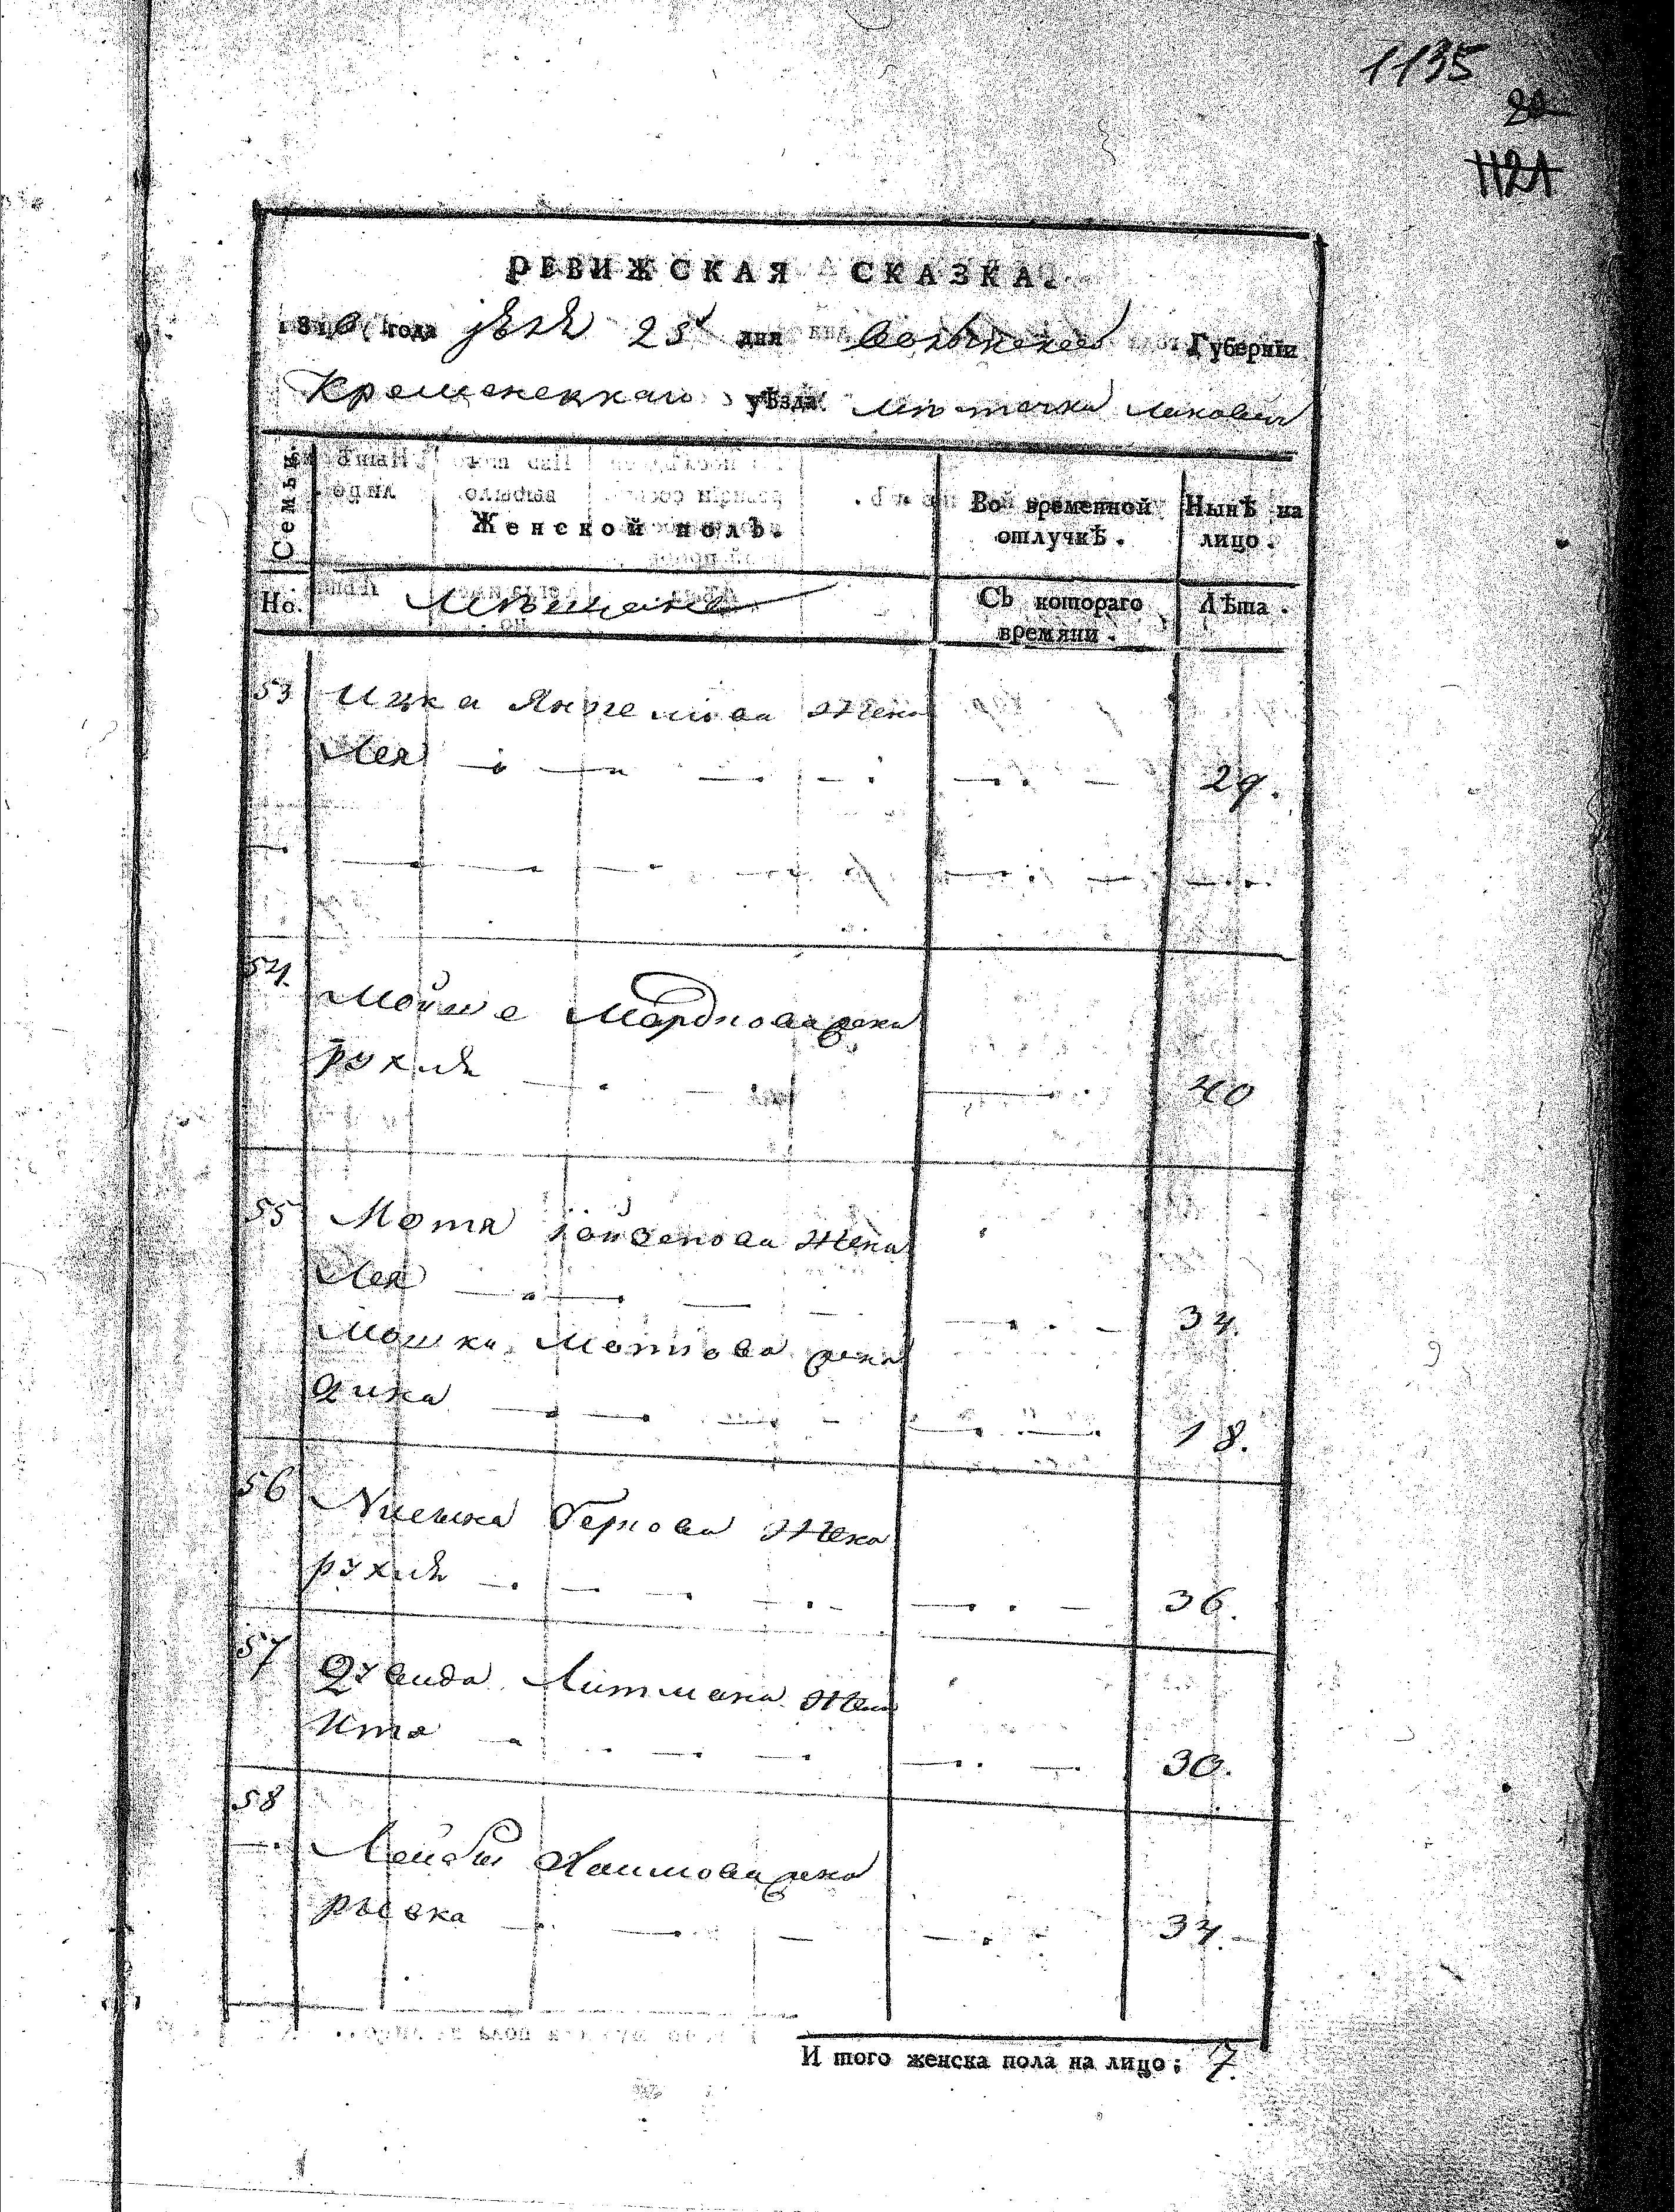 1135
20
1121
РЕВИЖСКАЯ СКАЗКА.
1816 года 25 дня Волынской Губернїи
Кременецкаго уѣзда мѣстечка
Семьи.
Женской полъ.
Во временной отлучкѣ.
Нынѣ на лицо.
Но.
Мещане
Съ котораго времяни.
Лѣта.
53 Ицка Янкелиова Жена
Лея 29.
54. Мойше Мордкова жена
Рухля 40
55 Мотя Жена
Лея 34.
Мошка Мотиова жена
18.
56 Жена
Рухля 36.
57 Литмана Жена
Итя 30.
58
Лейбы Хаимова жена
Рывка 34.
И того женска пола на лицо: 7.